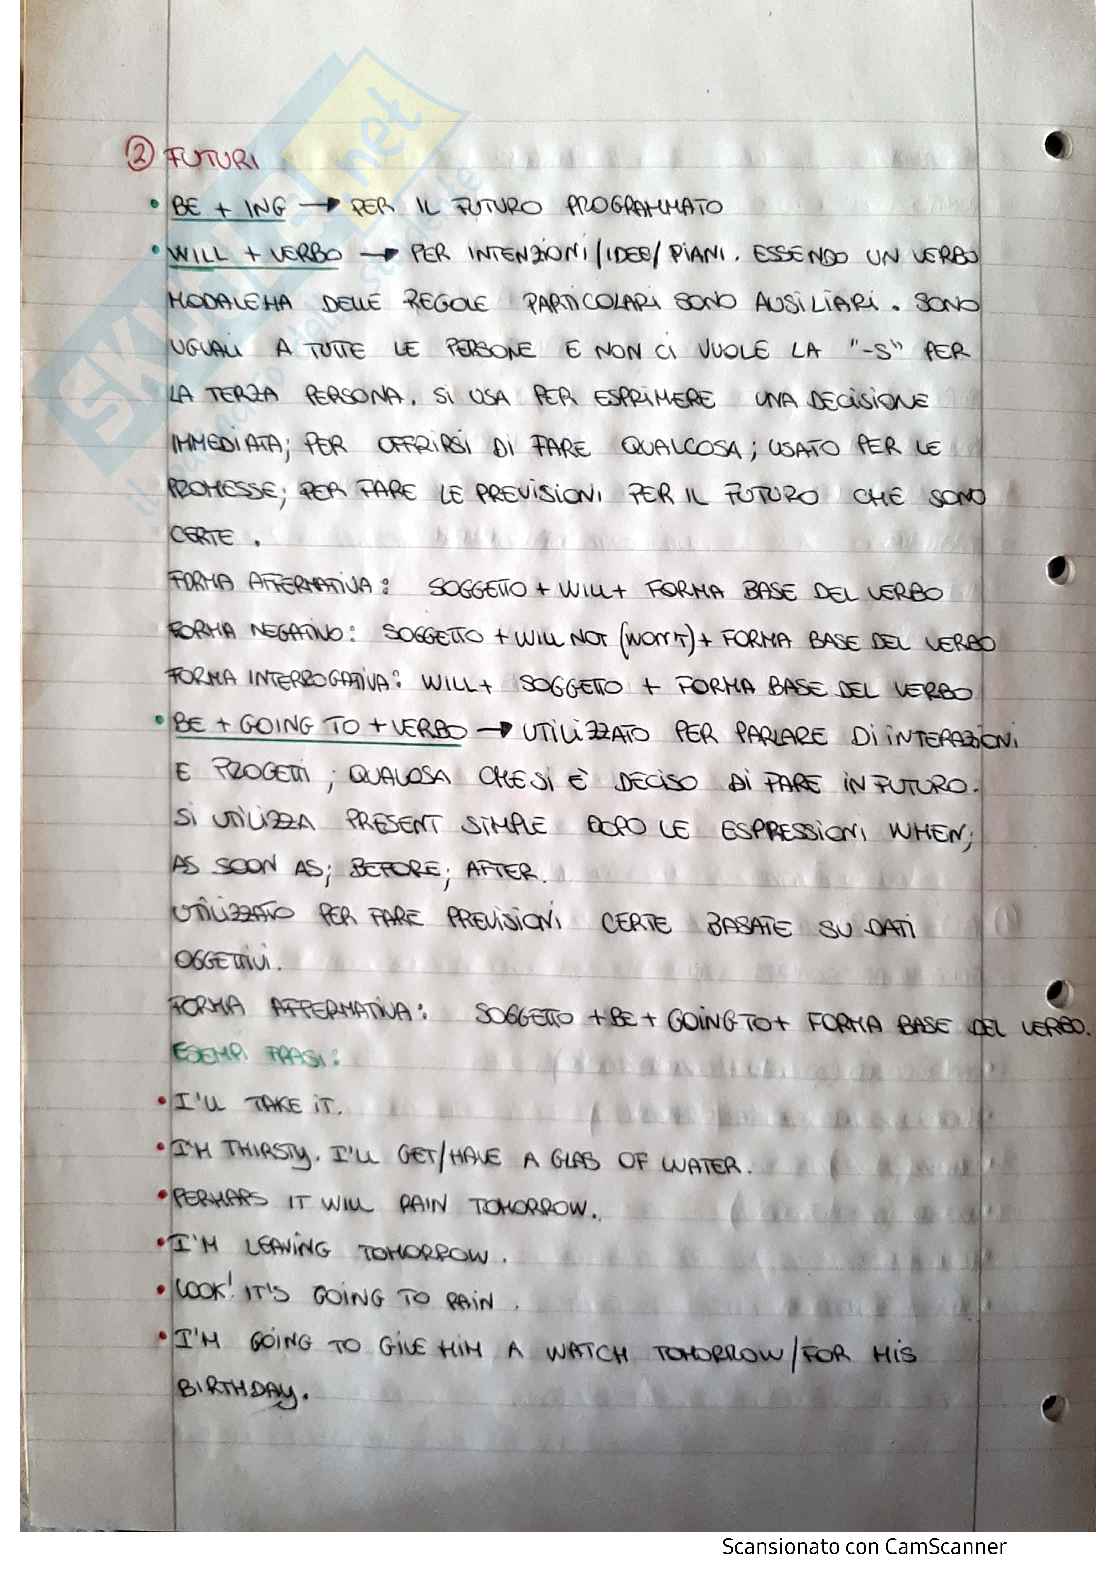 ② FUTURI
• BE + ING → PER IL FUTURO PROGRAMMATO
• WILL + VERBO → PER INTENZIONI/IDEE/PIANI. ESSENDO UN VERBO
MODALE HA DELLE REGOLE PARTICOLARI SONO AUSILIARI. SONO
UGUALI A TUTTE LE PERSONE E NON CI VUOLE LA "-S" PER
LA TERZA PERSONA. SI USA PER ESPRIMERE UNA DECISIONE
IMMEDIATA; PER OFFRIRSI DI FARE QUALCOSA; USATO PER LE
PROMESSE; PER FARE LE PREVISIONI PER IL FUTURO CHE SONO
CERTE.
FORMA AFFERMATIVA: SOGGETTO + WILL + FORMA BASE DEL VERBO
FORMA NEGATIVO: SOGGETTO + WILL NOT (WON'T) + FORMA BASE DEL VERBO
FORMA INTERROGATIVA: WILL + SOGGETTO + FORMA BASE DEL VERBO
• BE + GOING TO + VERBO → UTILIZZATO PER PARLARE DI INTERAZIONI
E PROGETTI; QUALOSA CHE SI È DECISO DI FARE IN FUTURO.
SI UTILIZZA PRESENT SIMPLE DOPO LE ESPRESSIONI WHEN;
AS SOON AS; BEFORE; AFTER.
UTILIZZATO PER FARE PREVISIONI CERTE BASATE SU DATI
OGGETTIVI.
FORMA AFFERMATIVA: SOGGETTO + BE + GOING TO + FORMA BASE DEL VERBO.
ESEMPI FRASI:
• I'LL TAKE IT.
• I'M THIRSTY. I'LL GET/HAVE A GLAS OF WATER.
• PERHAPS IT WILL RAIN TOMORROW.
• I'M LEAVING TOMORROW.
• LOOK! IT'S GOING TO RAIN.
• I'M GOING TO GIVE HIM A WATCH TOMORROW/FOR HIS
BIRTHDAY.
Scansionato con CamScanner